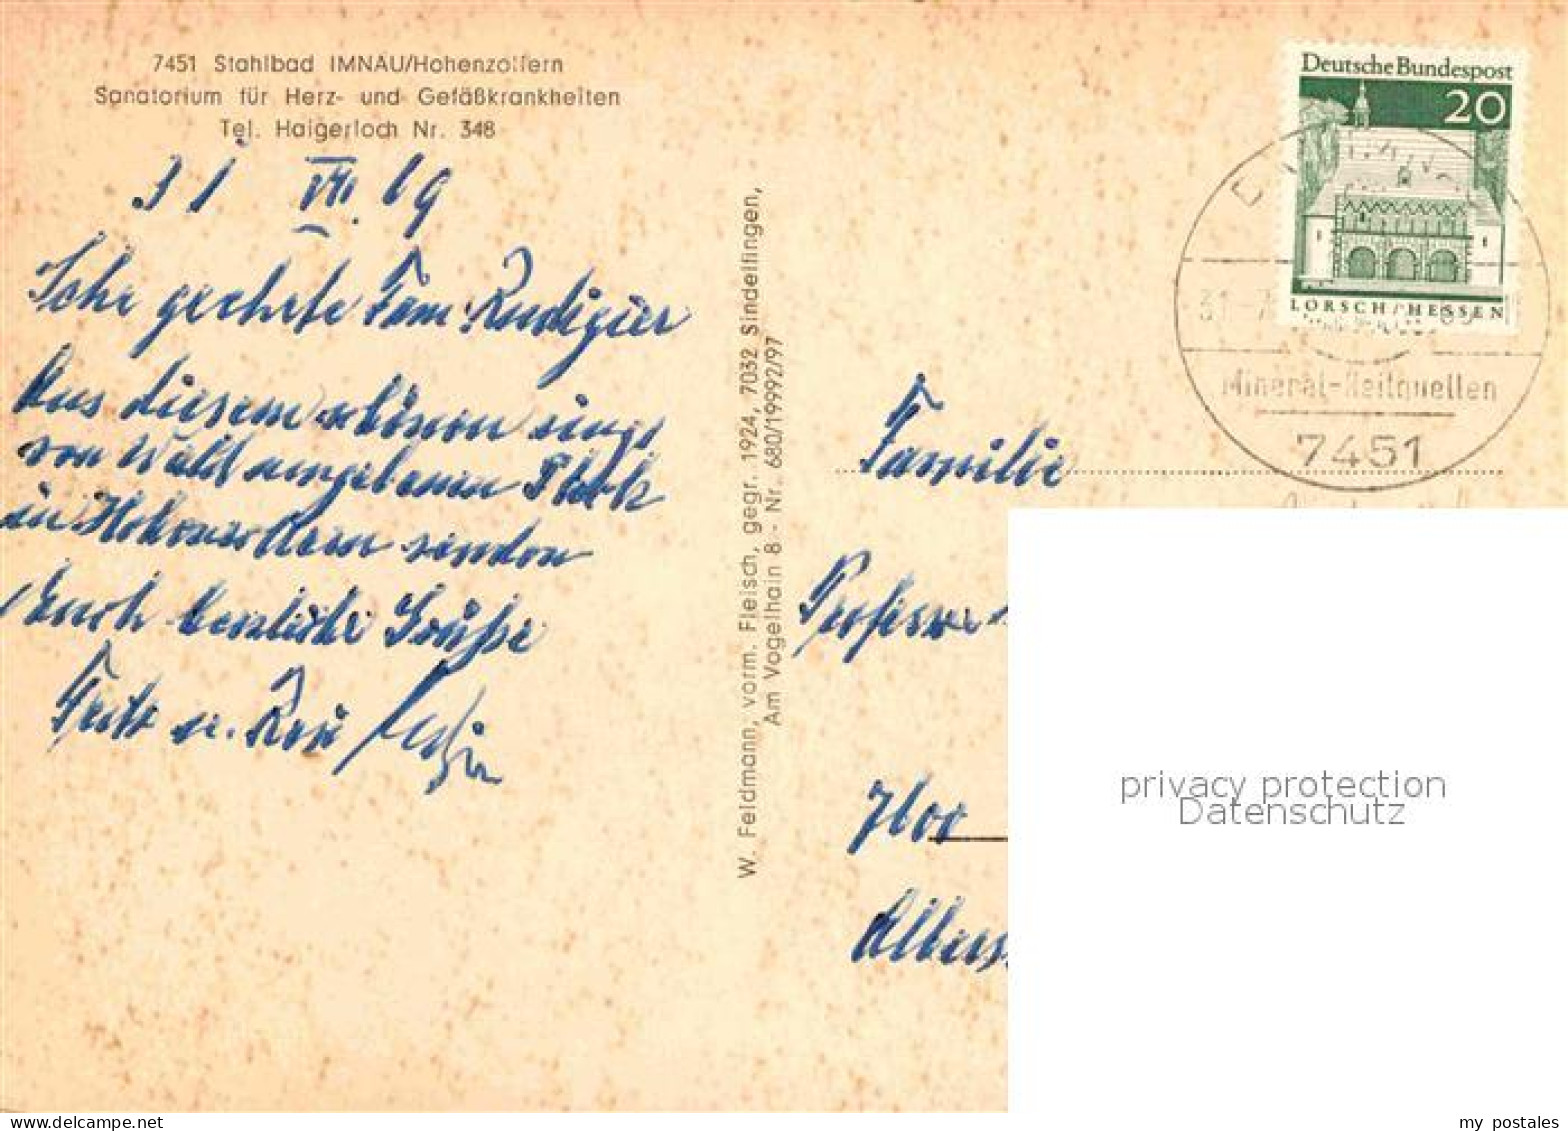 7451 Stahlbad IMNAU/Hohenzollern
Sanatorium für Herz- und Gefäßkrankheiten
Tel. Haigerloch Nr. 348
31 VII. 69
Sehr geehrte Fam. Rudigier
Aus diesem schönen rings
von Wald umgebenen Fleck
in Hohenzollern senden
Euch herzliche Grüße
W. Feldmann, vorm. Fleisch, gegr. 1924, 7032 Sindelfingen,
Am Vogelhain 8 - Nr. 680/19992/97
Deutsche Bundespost
20
LORSCH/HESSEN
31.-7.
Mineral-Heilquellen
7451
Familie
Professor
7600
privacy protection
Datenschutz
my postales